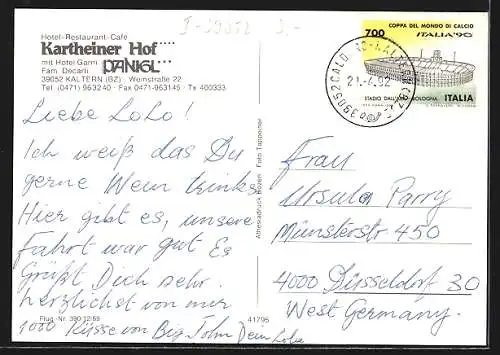 I-39052 5.-
Hotel-Restaurant-Café
Kartheiner Hof
mit Hotel Garni PANIGL
Fam. Decarli
39052 KALTERN (BZ) · Weinstraße 22
Tel (0471) 963240 · Fax 0471-963145 · Tx 400333
Liebe LoLo!
Ich weiß das Du
gerne Wein trinkst
Hier gibt es, unsere
Fahrt war gut Es
Grüßt Dich sehr
herzlichst von mir
1000 Küsse von Big John Dein Lobo
Flug-Nr. 390 12/59
41795
Foto Tappeiner
COPPA DEL MONDO DI CALCIO
700 ITALIA '90
STADIO BOLOGNA ITALIA
21.4.92
39052
Frau
Ursula Parry
Münsterstr 450
4000 Düsseldorf 30
West Germany.